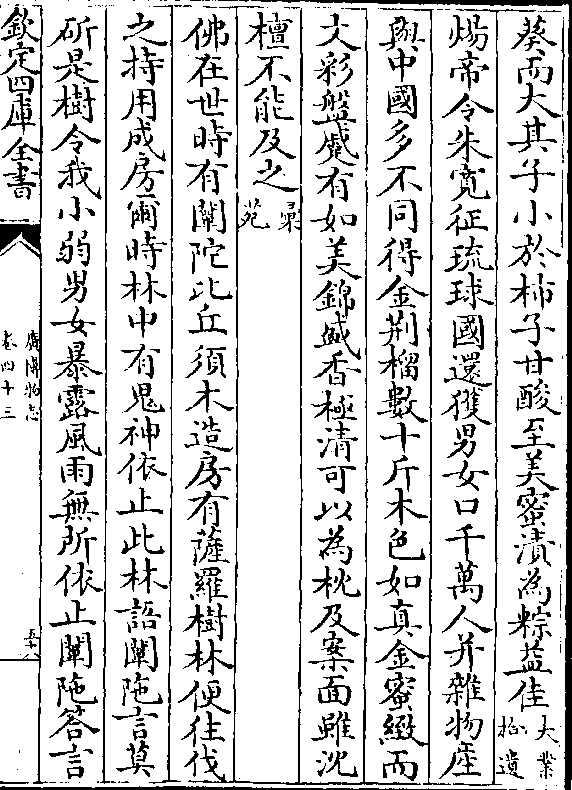 葵而大其子小於柿子甘酸至美蜜漬為粽益佳大業拾遺
煬帝令朱寛征琉球國還獲男女口千萬人并雜物產
與中國多不同得金荆榴數十斤木色如真金蜜緻而
文彩盤蹙有如美錦甚香極清可以為枕及案面雖沈
檀不能及之彔苑
佛在世時有闡陀比丘須木造房有薩羅樹林便往伐
之持用成房爾時林中有鬼神依止此林語闡陁言莫
斫是樹令我小弱男女暴露風雨無所依止闡陁荅言
欽定四庫全書
廣博物志
卷四十三